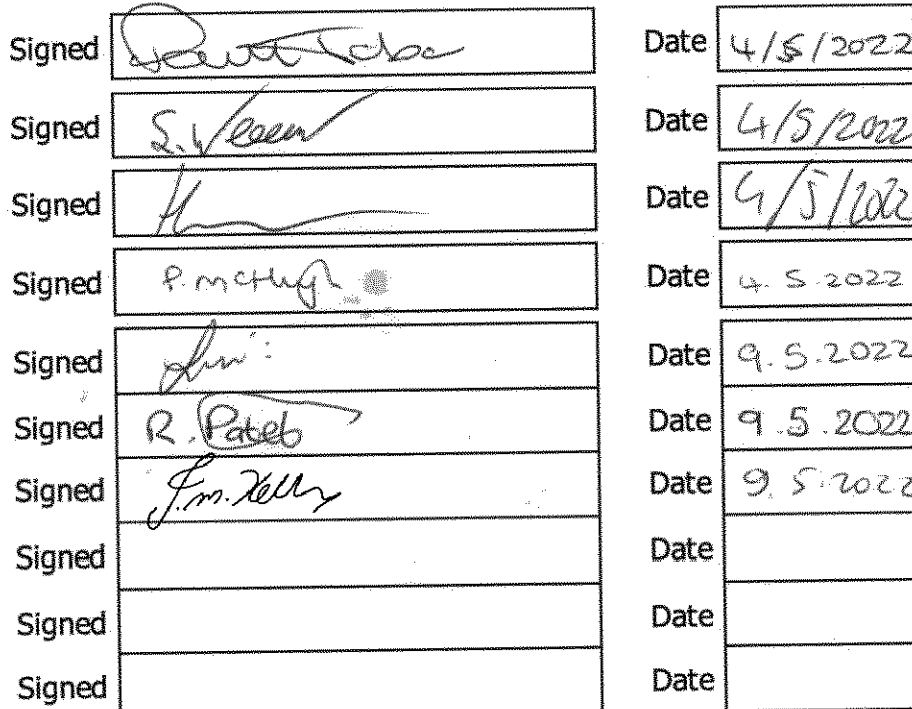 Signed Date 4/5/2022
Signed Date 4/5/2022
Signed Date 4/5/2022
Signed P. McHugh Date 4.5.2022
Signed Date 9.5.2022
Signed R. Patel Date 9.5.2022
Signed J.m. Kelly Date 9.5.2022
Signed Date
Signed Date
Signed Date